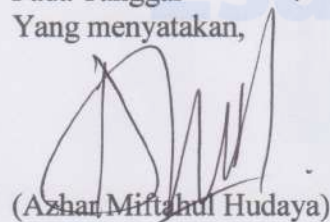 Yang menyatakan,
(Azhar Miftahul Hudaya)